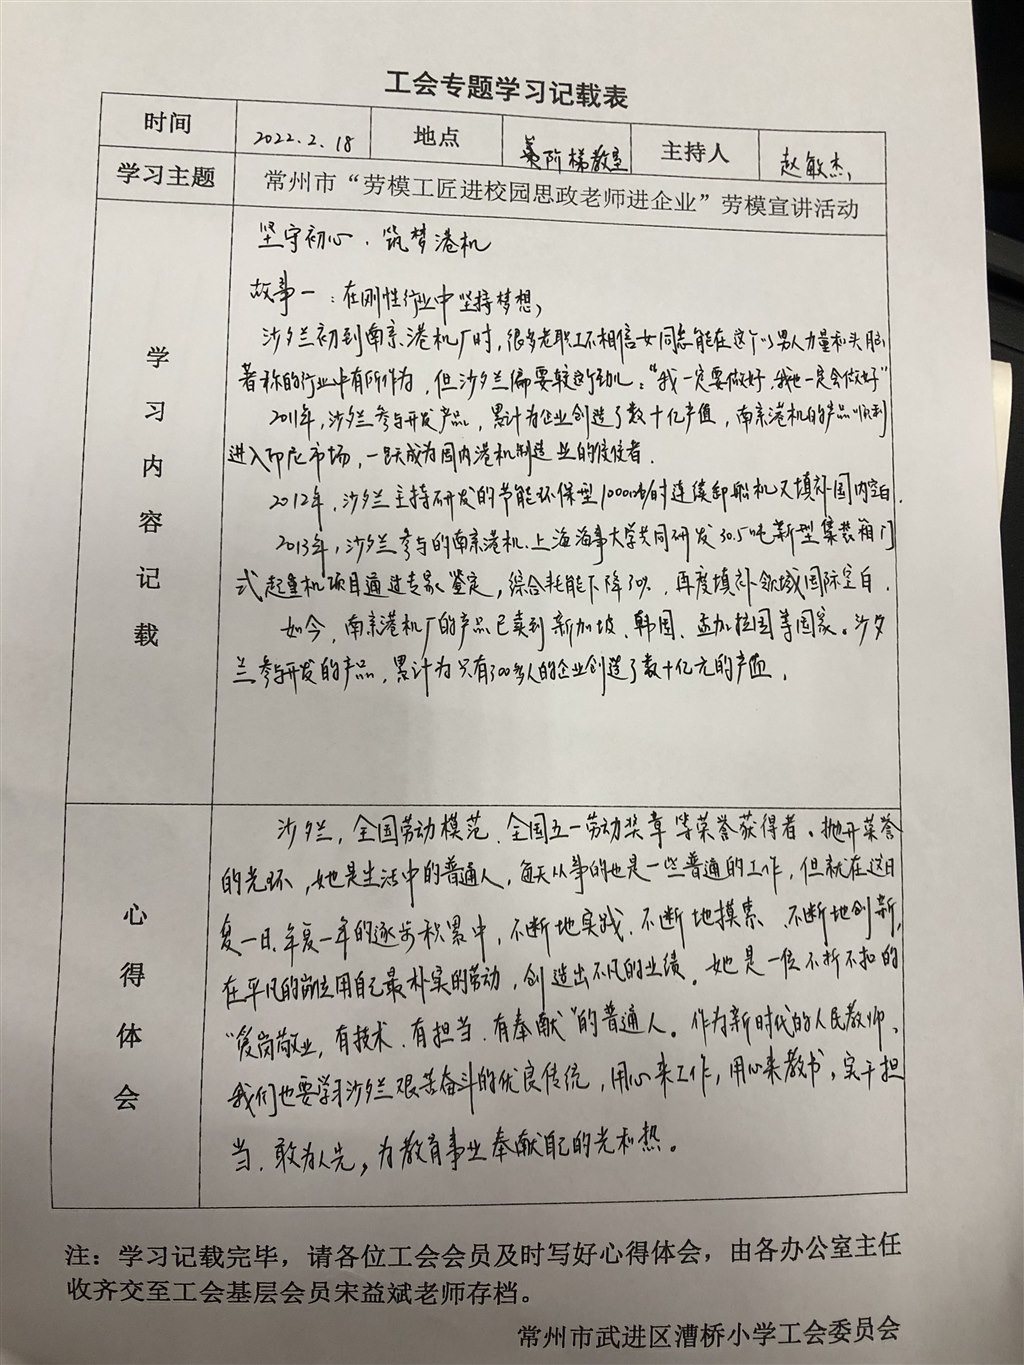 工会专题学习记载表
时间 2022.2.18 地点 阶梯教室 主持人 赵敏杰
学习主题 常州市“劳模工匠进校园思政老师进企业”劳模宣讲活动
学习内容记载
坚守初心、筑梦港机
故事一：在刚性行业中坚持梦想，
沙夕兰初到南京港机厂时，很多老职工不相信女同志能在这个以男人力量和头脑
著称的行业中有所作为，但沙夕兰偏要较这个劲儿：“我一定要做好，我也一定会做好”
2011年，沙夕兰参与开发产品，累计为企业创造了数十亿产值，南京港机的产品顺利
进入印尼市场，一跃成为国内港机制造业的佼佼者.
2012年，沙夕兰主持研发的节能环保型1000吨/时连续卸船机又填补国内空白.
2013年，沙夕兰参与的南京港机、上海海事大学共同研发30.5吨新型集装箱门
式起重机项目通过专家鉴定，综合耗能下降70%，再度填补领域国际空白.
如今，南京港机厂的产品已卖到新加坡、韩国、孟加拉国等国家。沙夕
兰参与开发的产品，累计为只有700多人的企业创造了数十亿元的产值.
心得体会
沙夕兰，全国劳动模范、全国五一劳动奖章等荣誉获得者。抛开荣誉
的光环，她是生活中的普通人，每天从事的也是一些普通的工作，但就在这日
复一日、年复一年的逐步积累中，不断地实践、不断地摸索、不断地创新，
在平凡的岗位用自己最朴实的劳动，创造出不凡的业绩。她是一位不折不扣的
“爱岗敬业，有技术、有担当、有奉献”的普通人。作为新时代的人民教师、
我们也要学习沙夕兰艰苦奋斗的优良传统，用心来工作，用心来教书，实干担
当、敢为人先，为教育事业奉献自己的光和热。
注：学习记载完毕，请各位工会会员及时写好心得体会，由各办公室主任
收齐交至工会基层会员宋益斌老师存档。
常州市武进区漕桥小学工会委员会